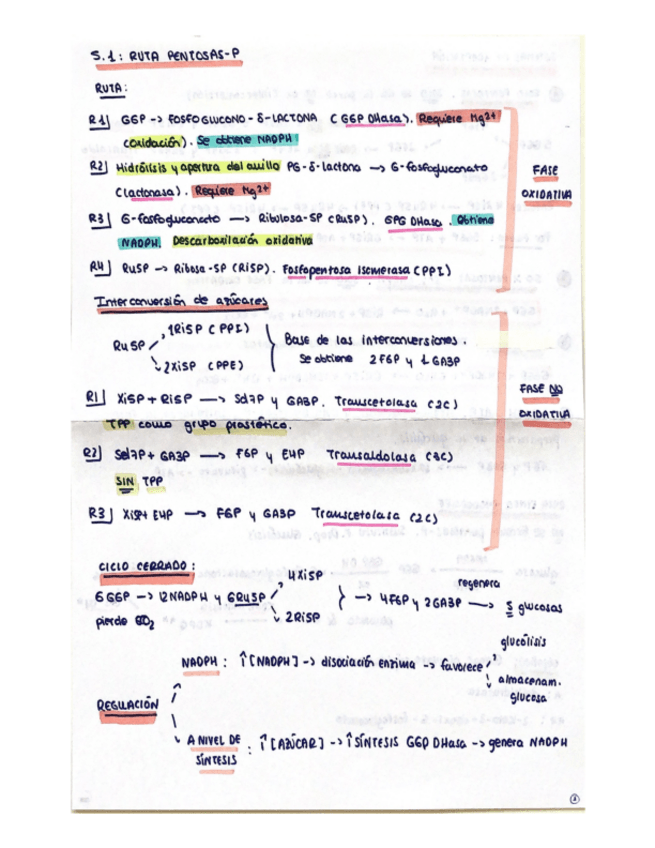 5.1: RUTA PENTOSAS-P
RUTA:
R1] G6P -> FOSFOGLUCONO-δ-LACTONA (G6P DHasa). Requiere Mg2+
(oxidación). Se obtiene NADPH
R2] Hidrólisis y apertura del anillo PG-δ-lactona -> 6-fosfogluconato
(lactonasa). Requiere Mg2+
R3] 6-fosfogluconato -> Ribulosa-5P (Ru5P). 6PG DHasa. Obtiene
NADPH. Descarboxilación oxidativa
R4] Ru5P -> Ribosa-5P (Ri5P). Fosfopentosa isomerasa (PPI)
FASE
OXIDATIVA
Interconversión de azúcares
Ru5P
1Ri5P (PPI)
2Xi5P (PPE)
Base de las interconversiones.
Se obtiene 2F6P y 1GA3P
R1] Xi5P + Ri5P -> Sd7P y GA3P. Transcetolasa (2C)
TPP como grupo prostético.
R2] Sd7P + GA3P -> F6P y E4P Transaldolasa (3C)
SIN TPP
R3] Xi5P + E4P -> F6P y GA3P Transcetolasa (2C)
FASE NO
OXIDATIVA
CICLO CERRADO:
6G6P -> 12NADPH y 6RU5P
4Xi5P
2Ri5P
-> 4F6P y 2GA3P -> 5 glucosas
regenera
pierdo CO2
REGULACIÓN
NADPH: ↑[NADPH] -> disociación enzima -> favorece
glucólisis
almacenam.
glucosa
A NIVEL DE
SÍNTESIS
: ↑[AZÚCAR] -> ↑SÍNTESIS G6P DHasa -> genera NADPH